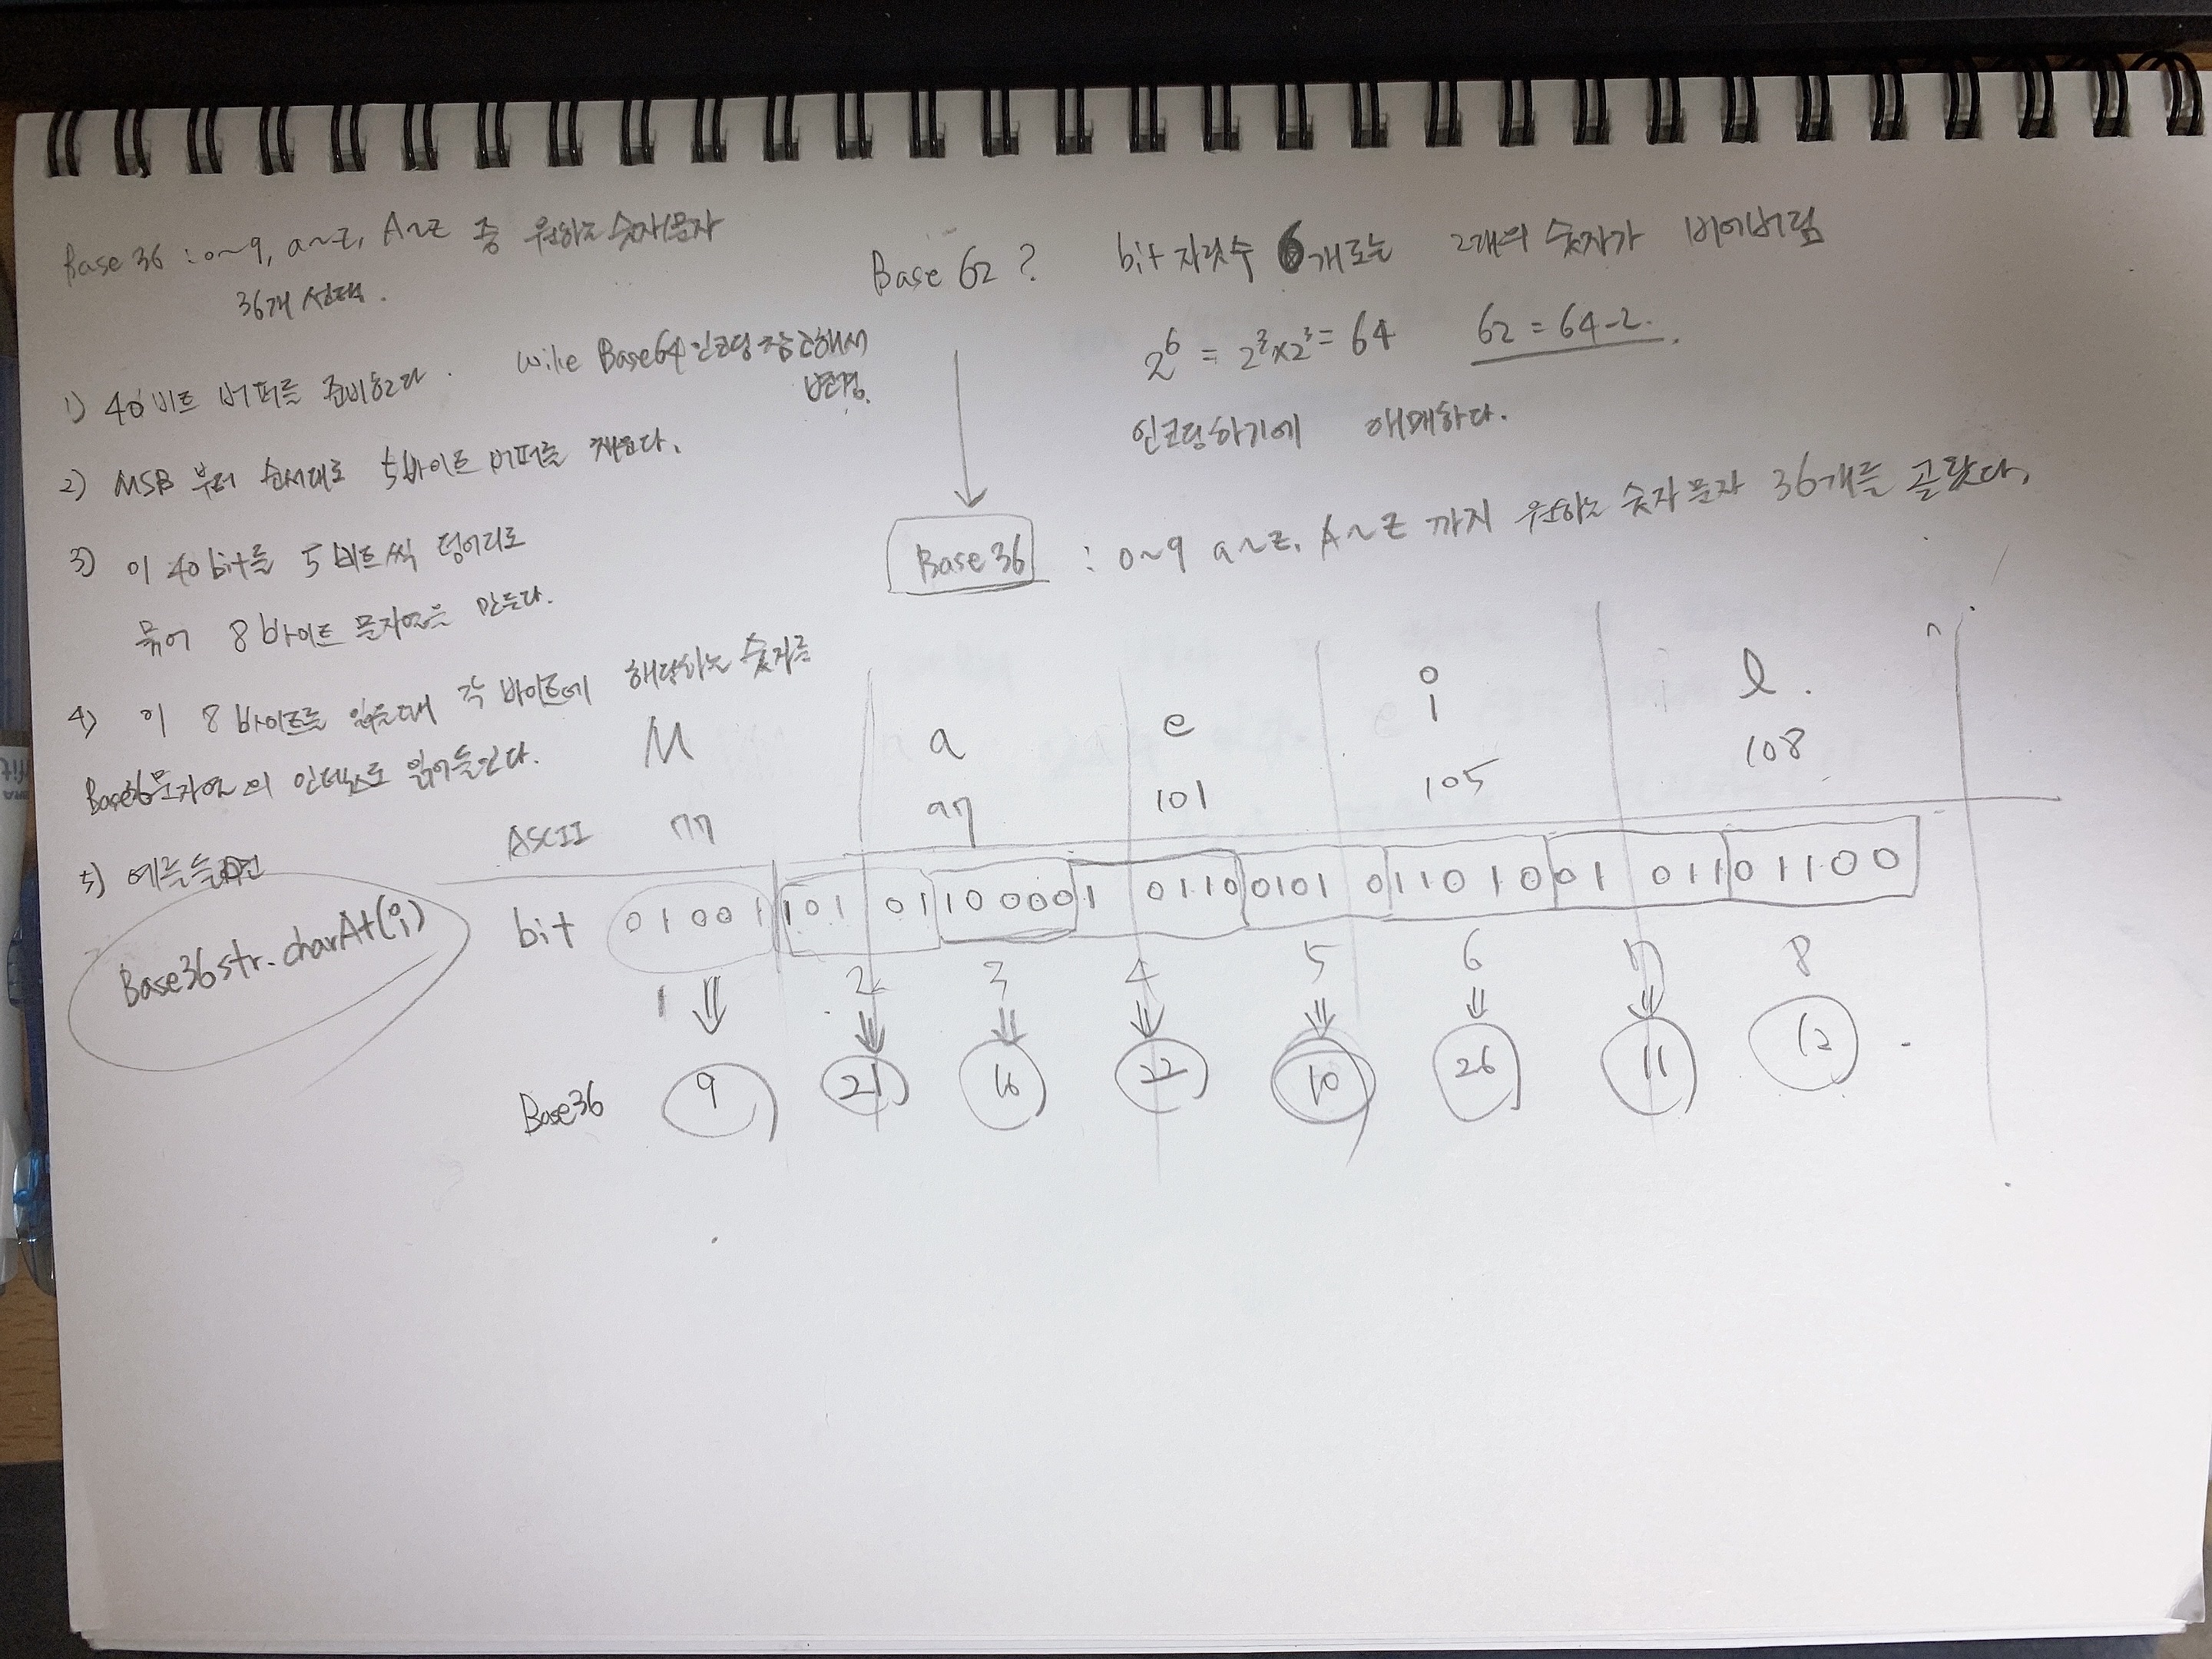 Base 36 : 0~9, a~z, A~Z 중 원하는 숫자/문자
36개 선택.
wiki Base64 인코딩 참고해서
변경.
1) 40 비트 버퍼를 준비한다.
2) MSB 부터 순서대로 5바이트 버퍼를 채운다.
3) 이 40bit를 5 비트씩 덩어리로
묶어 8 바이트 문자열을 만든다.
4) 이 8 바이트를 읽을때 각 바이트에 해당하는 숫자를
Base36문자열의 인덱스로 읽어들인다.
5) 예를들면
Base36str.charAt(i)
Base 62 ? bit 자릿수 6개로는 2개의 숫자가 비어버림
2^6 = 2^3 x 2^3 = 64 62 = 64-2.
인코딩하기에 애매하다.
Base 36 : 0~9 a~z, A~Z 까지 원하는 숫자 문자 36개를 골랐다.
M a e i l.
ASCII 77 97 101 105 108
bit 01001 101 01 10000 1 0110 0101 0 11010 01 011 01100
1 2 3 4 5 6 7 8
Base36 9 21 16 22 10 26 11 12